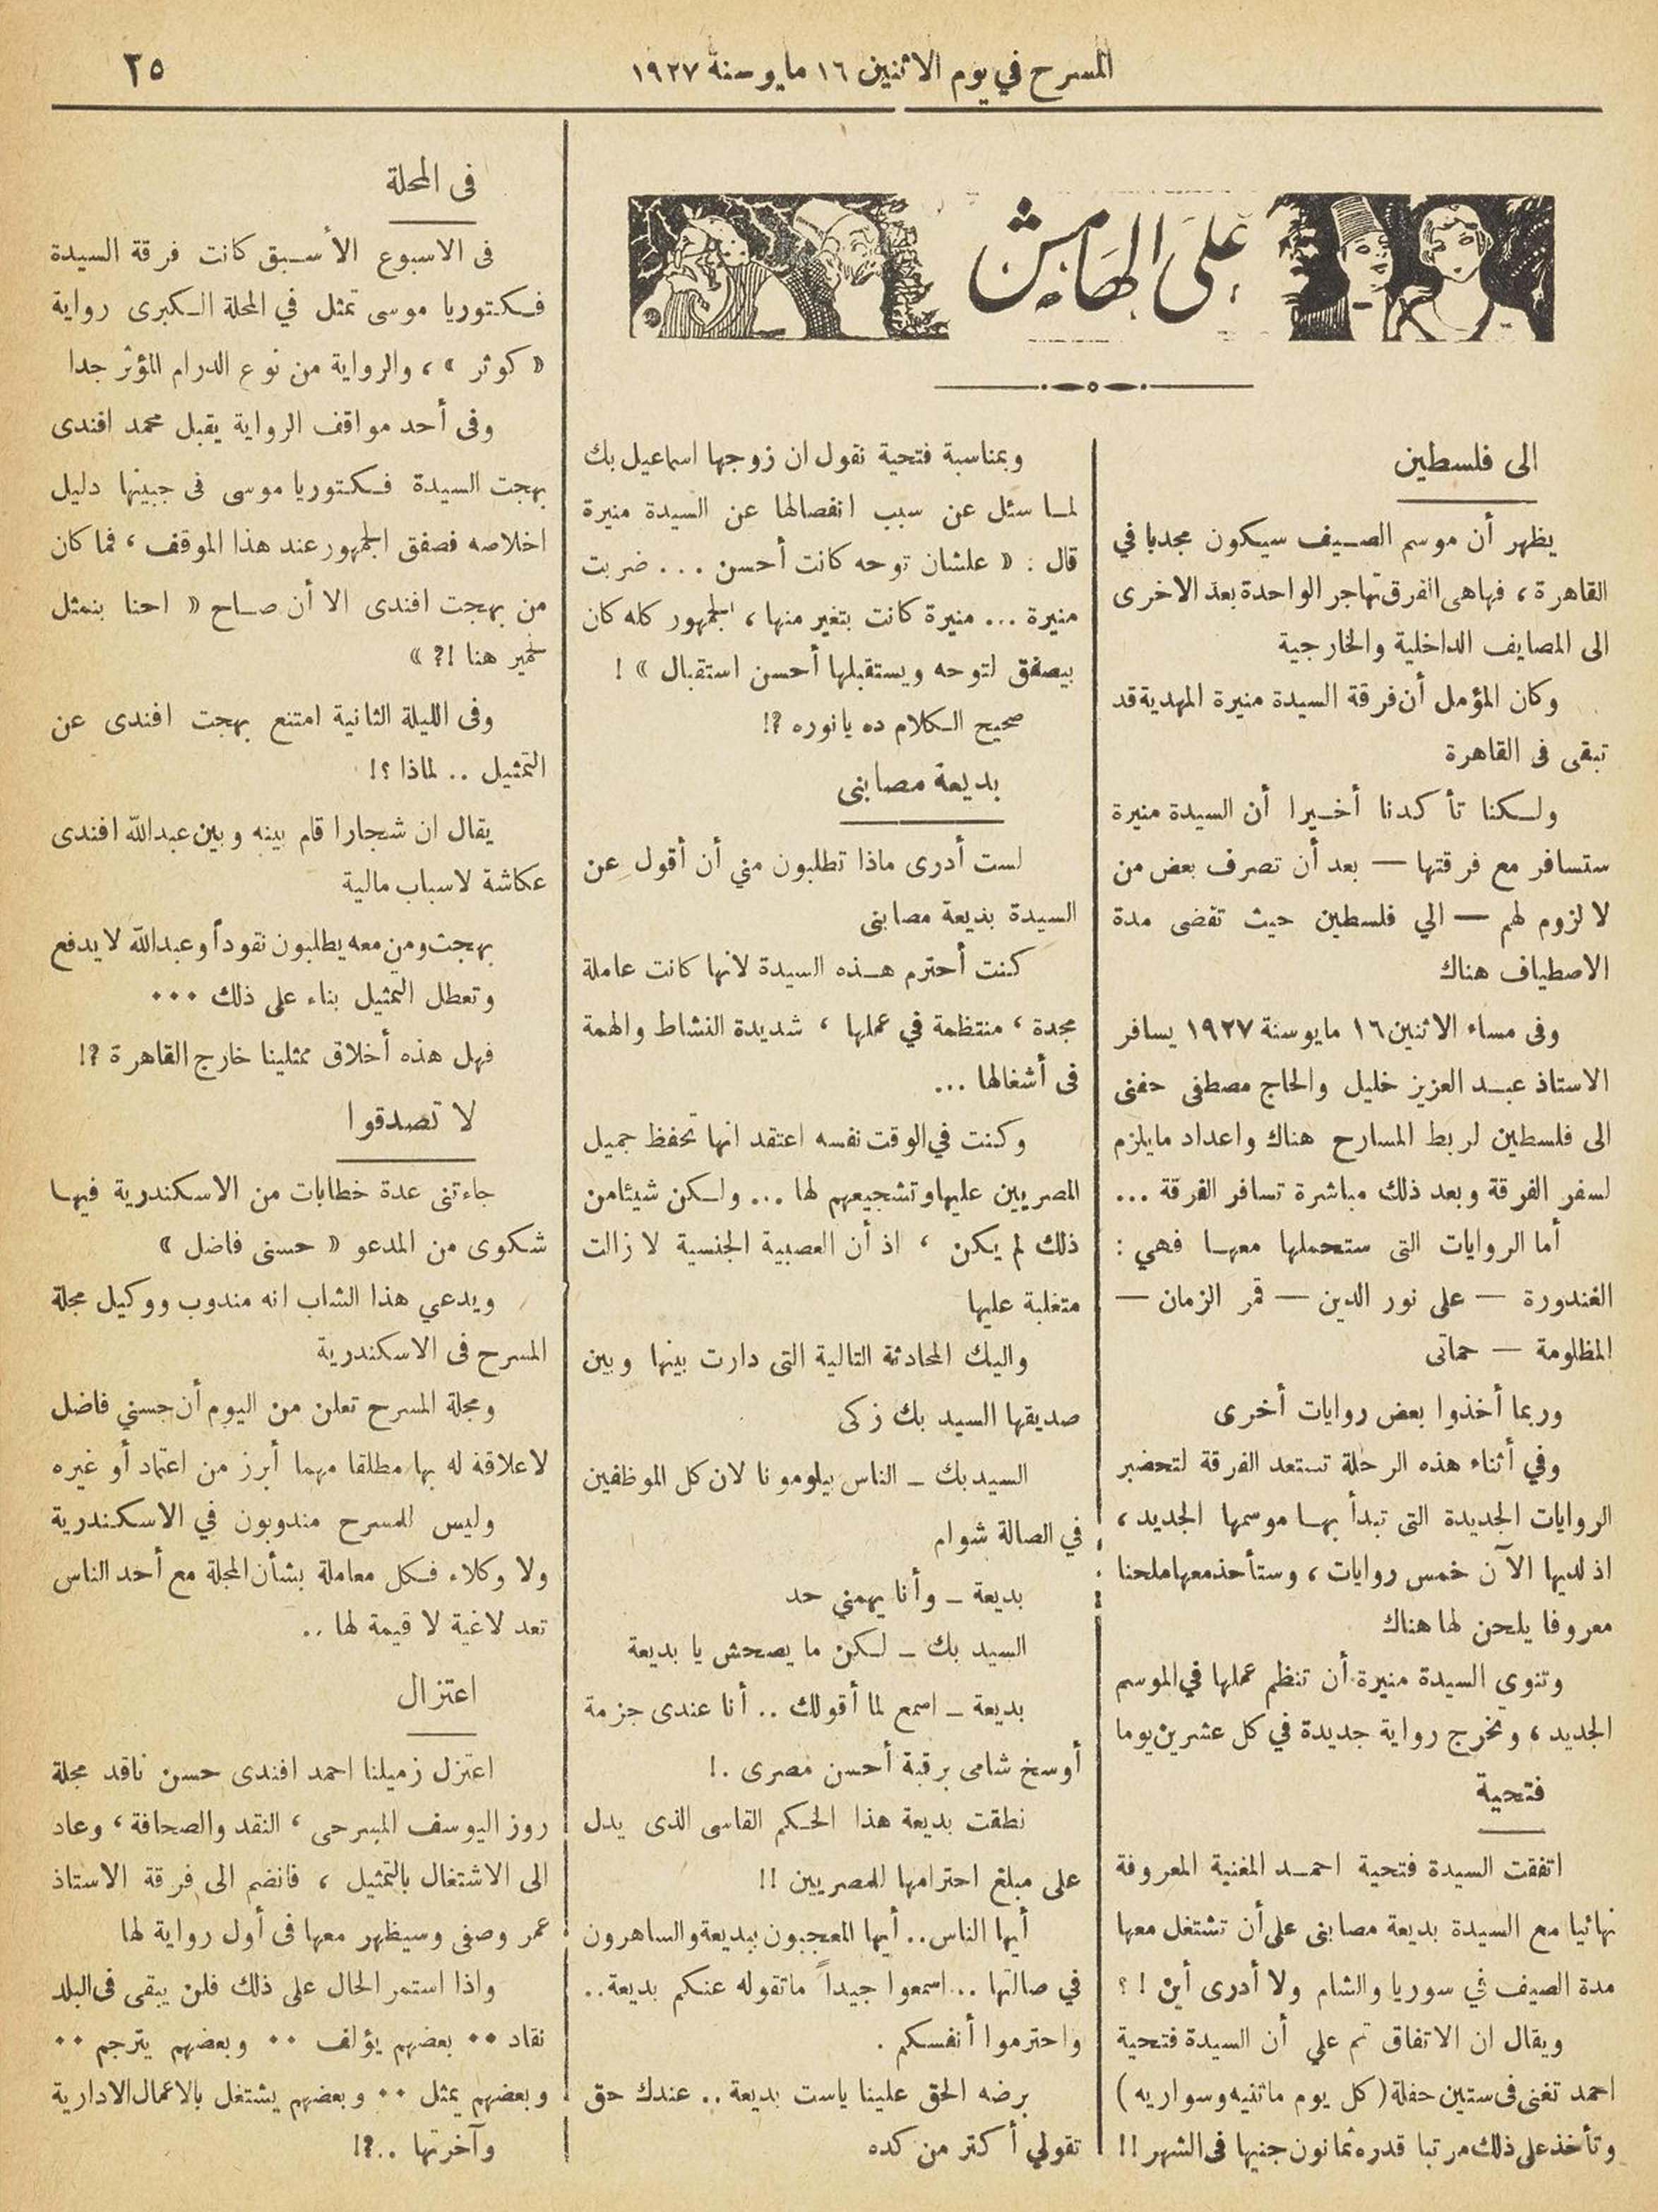 المسرح في يوم الاثنين ١٦ مايو سنة ١٩٢٧
٢٥
على الهامش
الى فلسطين
يظهر أن موسم الصيف سيكون مجدبا في
القاهرة ، فهاهى الفرق تهاجر الواحدة بعد الاخرى
الى المصايف الداخلية والخارجية
وكان المؤمل أن فرقة السيدة منيرة المهدية قد
تبقى فى القاهرة
ولكنا تأكدنا أخيرا أن السيدة منيرة
ستسافر مع فرقتها — بعد أن تصرف بعض من
لا لزوم لهم — الي فلسطين حيث تقضى مدة
الاصطياف هناك
وفى مساء الاثنين ١٦ مايو سنة ١٩٢٧ يسافر
الاستاذ عبد العزيز خليل والحاج مصطفى حفنى
الى فلسطين لربط المسارح هناك واعداد مايلزم
لسفر الفرقة وبعد ذلك مباشرة تسافر الفرقة ...
أما الروايات التى ستحملها معها فهي :
الغندورة — على نور الدين — قمر الزمان —
المظلومة — حماتى
وربما أخذوا بعض روايات أخرى
وفي أثناء هذه الرحلة تستعد الفرقة لتحضير
الروايات الجديدة التى تبدأ بها موسمها الجديد ،
اذ لديها الآن خمس روايات ، وستأخذ معها ملحنا
معروفا يلحن لها هناك
وتنوى السيدة منيرة أن تنظم عملها في الموسم
الجديد ، وتخرج رواية جديدة في كل عشرين يوما
فتحية
اتفقت السيدة فتحية احمد المغنية المعروفة
نهائيا مع السيدة بديعة مصابنى على أن تشتغل معها
مدة الصيف في سوريا والشام ولا أدرى أين ! ؟
ويقال ان الاتفاق تم علي أن السيدة فتحية
احمد تغنى فى ستين حفلة ( كل يوم ماتنيه وسواريه )
وتأخذ على ذلك مرتبا قدره ثمانون جنيها فى الشهر !!
وبمناسبة فتحية نقول ان زوجها اسماعيل بك
لما سئل عن سبب انفصالها عن السيدة منيرة
قال : « علشان توحه كانت أحسن ... ضربت
منيرة ... منيرة كانت بتغير منها ، الجمهور كله كان
بيصفق لتوحه ويستقبلها أحسن استقبال » !
صحيح الكلام ده يا نوره ؟!
بديعة مصابنى
لست أدرى ماذا تطلبون مني أن أقول عن
السيدة بديعة مصابنى
كنت أحترم هذه السيدة لانها كانت عاملة
مجدة ، منتظمة في عملها ، شديدة النشاط والهمة
فى أشغالها ...
وكنت في الوقت نفسه اعتقد انها تحفظ جميل
المصريين عليها وتشجيعهم لها ... ولكن شيئا من
ذلك لم يكن ، اذ أن العصبية الجنسية لا زالت
متغلبة عليها
واليك المحادثة التالية التى دارت بينها وبين
صديقها السيد بك زكى
السيد بك ـ الناس بيلومونا لان كل الموظفين
في الصالة شوام
بديعة ـ وأنا يهمني حد
السيد بك ـ لكن ما يصحش يا بديعة
بديعة ـ اسمع لما أقولك .. أنا عندى جزمة
أوسخ شامى برقبة أحسن مصرى .!
نطقت بديعة هذا الحكم القاسى الذى يدل
على مبلغ احترامها للمصريين !!
أيها الناس.. أيها المعجبون ببديعة والساهرون
في صالتها ... اسمعوا جيداً ماتقوله عنكم بديعة..
واحترموا أنفسكم .
برضه الحق علينا ياست بديعة .. عندك حق
تقولي أكتر من كده
فى المحلة
فى الاسبوع الأسبق كانت فرقة السيدة
فكتوريا موسى تمثل في المحلة الكبرى رواية
« كوثر » ، والرواية من نوع الدرام المؤثر جدا
وفى أحد مواقف الرواية يقبل محمد افندى
بهجت السيدة فكتوريا موسى فى جبينها دليل
اخلاصه فصفق الجمهور عند هذا الموقف ، فما كان
من بهجت افندى الا أن صاح « احنا بنمثل
لحمير هنا !؟ »
وفى الليلة الثانية امتنع بهجت افندى عن
التمثيل .. لماذا ؟!
يقال ان شجارا قام بينه وبين عبدالله افندى
عكاشة لاسباب مالية
بهجت ومن معه يطلبون نقوداً وعبدالله لا يدفع
وتعطل التمثيل بناء على ذلك ...
فهل هذه أخلاق ممثلينا خارج القاهرة ؟!
لا تصدقوا
جاءتنى عدة خطابات من الاسكندرية فيها
شكوى من المدعو « حسنى فاضل »
ويدعي هذا الشاب انه مندوب ووكيل مجلة
المسرح فى الاسكندرية
ومجلة المسرح تعلن من اليوم أن حسني فاضل
لا علاقة له بها مطلقا مهما أبرز من اعتماد أو غيره
وليس للمسرح مندوبون في الاسكندرية
ولا وكلاء فكل معاملة بشأن المجلة مع أحد الناس
تعد لاغية لا قيمة لها ..
اعتزال
اعتزل زميلنا احمد افندى حسن ناقد مجلة
روز اليوسف المسرحى ، النقد والصحافة ، وعاد
الى الاشتغال بالتمثيل ، فانضم الى فرقة الاستاذ
عمر وصفى وسيظهر معها فى أول رواية لها
واذا استمر الحال على ذلك فلن يبقى فى البلد
نقاد .. بعضهم يؤلف .. وبعضهم يترجم ..
وبعضهم يمثل .. وبعضهم يشتغل بالاعمال الادارية
وآخرتها ..؟!